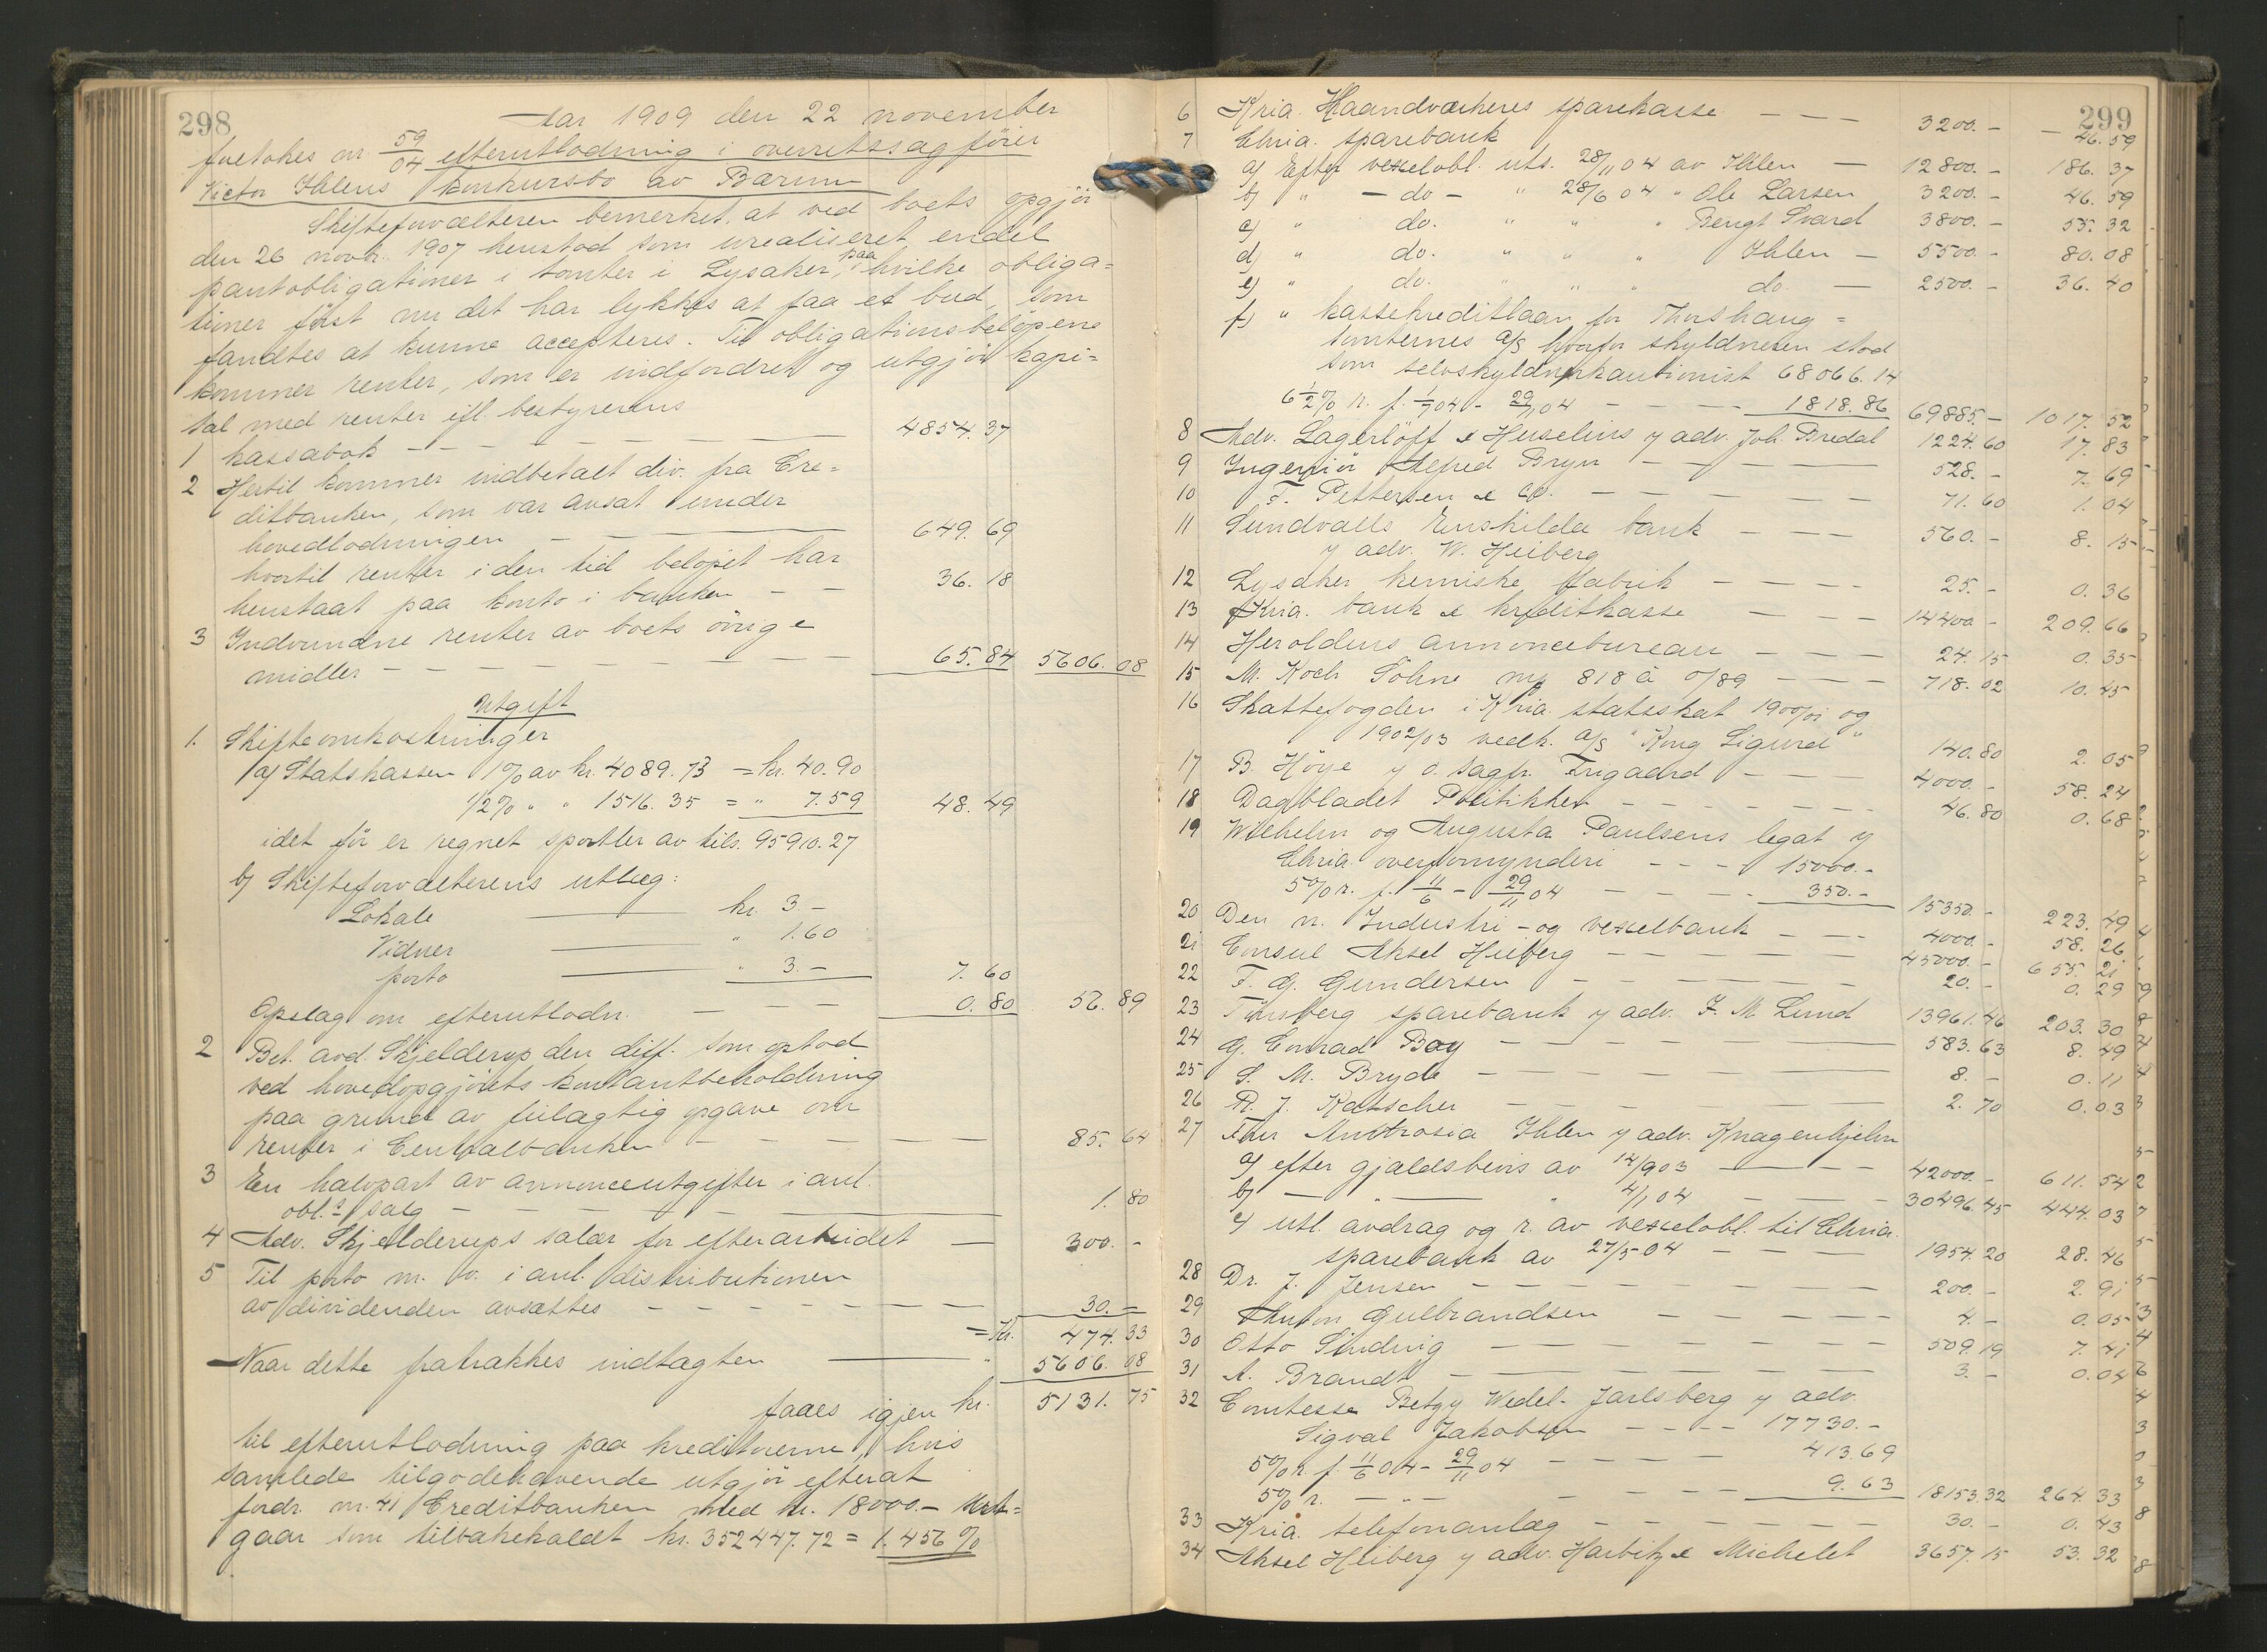 298
Aar 1909 den 22 november
foretokes nr 59/04 efterutlodning i overretssagfører
Victor Ihlens konkursbo av Bærum
Skifteforvalteren bemerket, at ved boets opgjör
den 26 novbr. 1907 henstod som urealiseret endel
pantobligationer i tomter i Lysaker, paa hvilke obliga=
tioner först nu det har lykkes at faa et bud, som
fandtes at kunne accepteres. Til obligationsbelöpene
kommer renter, som er indfordret og utgjör kapi=
tal med renter ifl. bestyrerens
1 kassabok - - - 4854.37
2 Hertil kommer indbetalt div. fra Cre=
ditbanken, som var avsat under
hovedlodningen - 649.69
hvortil renter i den tid belöpet har
henstaat paa konto i banken - - 36.18
3 Indvundne renter av boets övrige
midler - - - 65.84 5606.08
Utgift
1. Skifteomkostninger
a) Statskassen 1% av kr. 4089.73 = kr. 40.90
1/2% " " 1516.35 = " 7.59 48.49
idet för er regnet sportler av tils. 95910.27
b) Skifteforvalterens utlæg:
Lokale kr. 3.-
Vidner " 1.60
porto " 3.- 7.60
Opslag om efterutlodn. - - - 0.80 56.89
2 Bet. avd. Skjelderup den diff. som opstod
ved hovedopgjörets kontantbeholdning
paa grund av feilagtig opgave om
renter i Centralbanken - - - 85.64
3 En halvpart av annonceutgifter i anl.
obl.s salg - - - 1.80
4 Adv. Skjelderups salær for efterarbeidet - 300.-
5 Til porto m. v. i anl. distributionen
av dividenden avsættes - - - 30.-
= Kr. 474.33
Naar dette fratrækkes indtægten " 5606.08
faaes igjen kr. 5131.75
til efterutlodning paa kreditorerne, hvis
samlede tilgodehavende utgjör efterat
fordr. nr. 41 Creditbanken med kr. 18000.- ut=
gaar som tilbakekaldt kr. 352447.72 = 1.456 %
299
6 Kria. Haandværkeres sparekasse - - - 3200.- 46.59
7 Chria. sparebank
a) Efter vexelobl. uts. 28/11 04 av Ihlen - 12800.- 186.37
b) " - do - " 28/6 04 " Ole Larsen 3200.- 46.59
c) " do. " " " Bengt Svard 3800.- 55.32
d) " do. " " " Ihlen - 5500.- 80.08
e) " do. " " " do. - 2500.- 36.40
f) " kassekreditlaan for Thorshaug=
tomternes A/S hvorfor skyldneren stod
som selvskyldnerkautionist 68066.14
6 1/2 % r. f. 1/7 04 - 29/11 04 - - - 1818.86 69885.- 1017.52
8 Adv. Lagerlöff & Huselius v adv. Joh. Bredal 1224.60 17.83
9 Ingeniör Alfred Bryn - - - 528.- 7.69
10 F. Pettersen & Co. - - - 71.60 1.04
11 Sundvalls Enskilda bank - - - 560.- 8.15
v adv. W. Heiberg
12 Lysaker kemiske fabrik - - - 25.- 0.36
13 Kria. bank & kreditkasse - - - 14400.- 209.66
14 Heroldens annoncebureau - - - 24.15 0.35
15 M. Koch Söhne 818 à 0/89 - - - 718.02 10.45
16 Skattefogden i Kria. statsskat 1900/01 og
1902/03 vedk. A/S "Kong Sigurd" 140.80 2.05
17 B. Höye v o. sagfr. Trigaard - - - 4000.- 58.24
18 Dagbladet Politikken - - - 46.80 0.68
19 Wilhelm og Augusta Paulsens legat v
Chria. overformynderi - - - 15000.-
5% r. f. 11/6 - 29/11 04 - - - 350.- 15350.- 223.49
20 Den n. Industri- og vexelbank - - - 4000.- 58.26
21 Consul Aksel Heiberg - - - 45000.- 655.21
22 F. G. Gundersen - - - 20.- 0.29
23 Tönsberg sparebank v adv. F. M. Lund 13961.46 203.30
24 G. Conrad Boy - - - 583.63 8.49
25 S. M. Bryde - - - 8.- 0.11
26 R. J. Katscher - - - 2.70 0.03
27 Fru Ambrosia Ihlen v adv. Knagenhjelm
a) efter gjældsbevis av 14/9 03 - - 42000.- 611.54
b) - " - " 4/1 04 - - 30496.45 444.03
c) utl. avdrag og r. av vexelobl. til Chria.
sparebank av 27/5 04 - - - 1954.20 28.46
28 Dr. J. Jensen - - - 200.- 2.91
29 Anton Gulbrandsen - - - 4.- 0.05
30 Otto Sinding - - - 509.19 7.41
31 A. Brandt - - - 3.- 0.04
32 Comtesse Betzy Wedel-Jarlsberg v adv.
Sigval Jakobsen - - - 17730.-
5% r. f. 11/6 04 - 29/11 04 - - - 413.69
5% r. - " - - - 9.63 18153.32 264.33
33 Kria. telefonanlæg - - - 30.- 0.43
34 Aksel Heiberg v adv. Harbitz & Michelet 3657.15 53.32